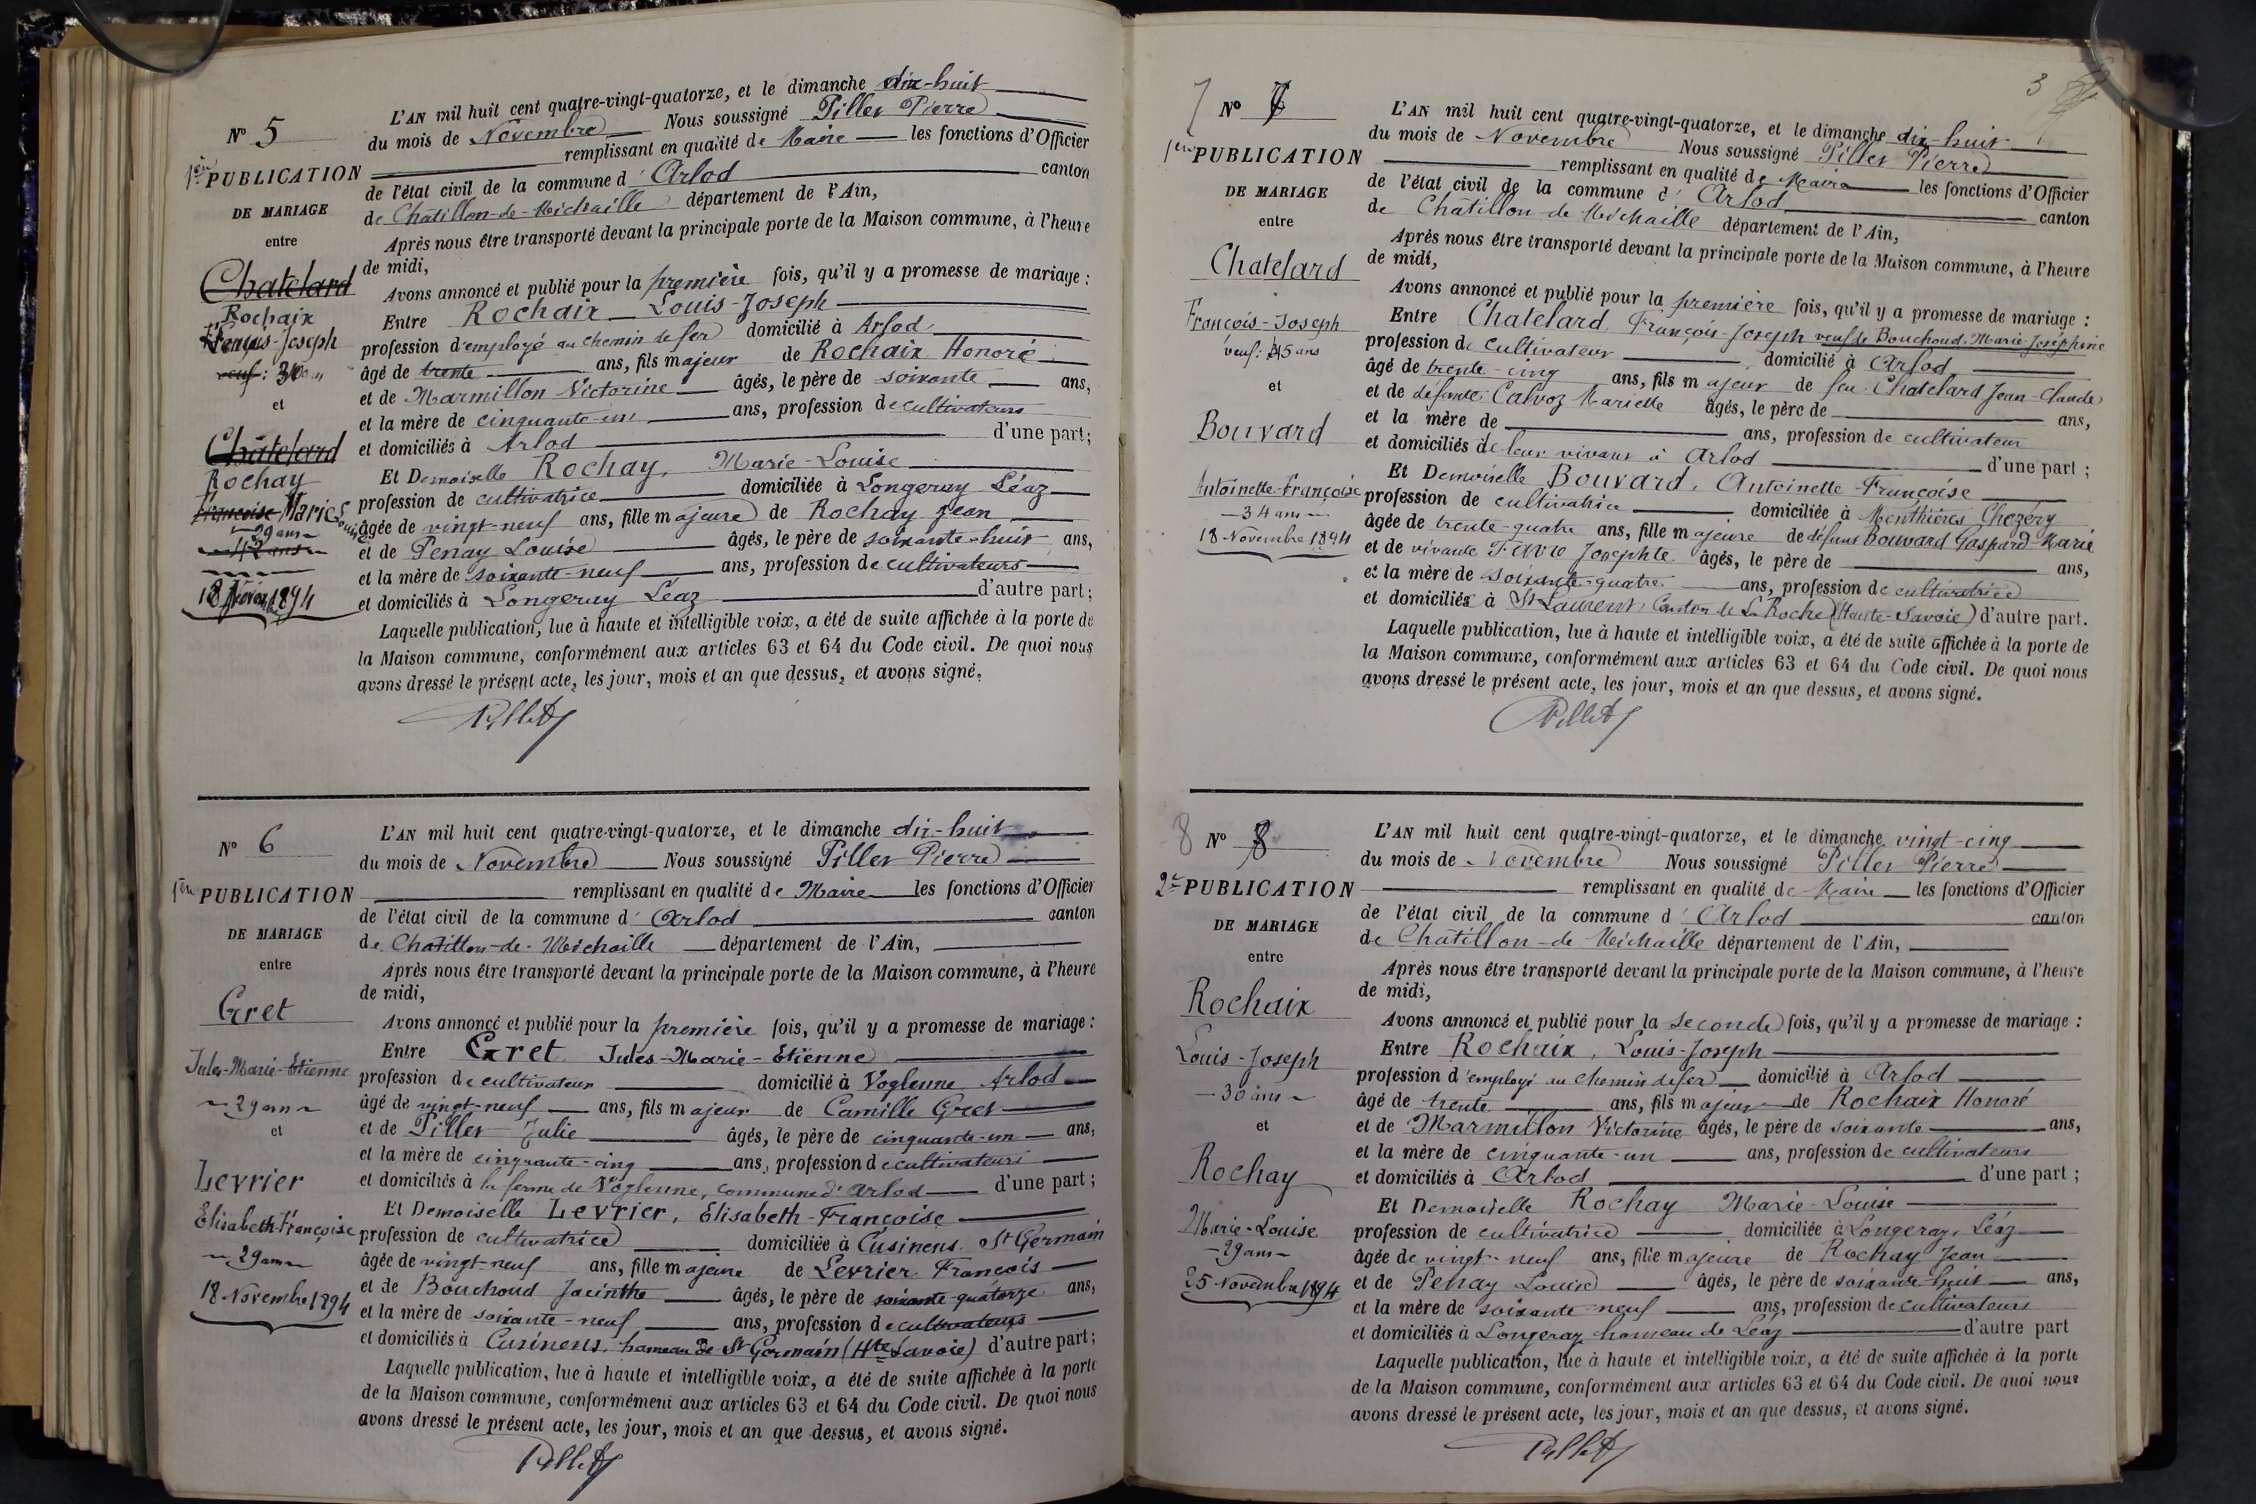 N° 5
1ère PUBLICATION
DE MARIAGE
entre
Chatelard
Rochaix
Joseph
veuf : 30
et
Châtelard
Rochay
Françoise Marie Louise
29 ans
42 ans
18 1894
L'AN mil huit cent quatre-vingt-quatorze, et le dimanche dix-huit
du mois de Novembre Nous soussigné Pillet Pierre
remplissant en qualité de Maire les fonctions d'Officier
de l'état civil de la commune d' Arlod canton
de Châtillon-de-Michaille département de l'Ain,
Après nous être transporté devant la principale porte de la Maison commune, à l'heure
de midi,
Avons annoncé et publié pour la première fois, qu'il y a promesse de mariage :
Entre Rochaix Louis-Joseph
profession d'employé au chemin de fer domicilié à Arlod
âgé de trente ans, fils majeur de Rochaix Honoré
et de Marmillon Victorine âgés, le père de soixante ans,
et la mère de cinquante-un ans, profession de cultivateurs
et domiciliés à Arlod d'une part;
Et Demoiselle Rochay, Marie-Louise
profession de cultivatrice domiciliée à Longeray Léaz
âgée de vingt-neuf ans, fille majeure de Rochay Jean
et de Penay Louise âgés, le père de soixante-huit ans,
et la mère de soixante-neuf ans, profession de cultivateurs
et domiciliés à Longeray Léaz d'autre part;
Laquelle publication, lue à haute et intelligible voix, a été de suite affichée à la porte de
la Maison commune, conformément aux articles 63 et 64 du Code civil. De quoi nous
avons dressé le présent acte, les jour, mois et an que dessus, et avons signé.
Pillet
N° 6
1ère PUBLICATION
DE MARIAGE
entre
Gret
Jules-Marie-Etienne
29 ans
et
Levrier
Elisabeth-Françoise
29 ans
18 Novembre 1894
L'AN mil huit cent quatre-vingt-quatorze, et le dimanche dix-huit
du mois de Novembre Nous soussigné Pillet Pierre
remplissant en qualité de Maire les fonctions d'Officier
de l'état civil de la commune d' Arlod canton
de Chatillon-de-Michaille département de l'Ain,
Après nous être transporté devant la principale porte de la Maison commune, à l'heure
de midi,
Avons annoncé et publié pour la première fois, qu'il y a promesse de mariage :
Entre Gret Jules-Marie-Etienne
profession de cultivateur domicilié à Voglenne Arlod
âgé de vingt-neuf ans, fils majeur de Camille Gret
et de Pillet Julie âgés, le père de cinquante-un ans,
et la mère de cinquante-cinq ans, profession de cultivateurs
et domiciliés à la ferme de Voglenne, commune d'Arlod d'une part;
Et Demoiselle Levrier, Elisabeth-Françoise
profession de cultivatrice domiciliée à Cusinens St Germain
âgée de vingt-neuf ans, fille majeure de Levrier François
et de Bouchoud Jacinthe âgés, le père de soixante-quatorze ans,
et la mère de soixante-neuf ans, profession de cultivateurs
et domiciliés à Cusinens, hameau de St Germain (Hte Savoie) d'autre part;
Laquelle publication, lue à haute et intelligible voix, a été de suite affichée à la porte
de la Maison commune, conformément aux articles 63 et 64 du Code civil. De quoi nous
avons dressé le présent acte, les jour, mois et an que dessus, et avons signé.
Pillet
3
7 N° 7
1ère PUBLICATION
DE MARIAGE
entre
Chatelard
François-Joseph
veuf : 35 ans
et
Bouvard
Antoinette-Françoise
34 ans
18 Novembre 1894
L'AN mil huit cent quatre-vingt-quatorze, et le dimanche dix-huit
du mois de Novembre Nous soussigné Pillet Pierre
remplissant en qualité de Maire les fonctions d'Officier
de l'état civil de la commune d' Arlod canton
de Châtillon de Michaille département de l'Ain,
Après nous être transporté devant la principale porte de la Maison commune, à l'heure
de midi,
Avons annoncé et publié pour la première fois, qu'il y a promesse de mariage :
Entre Chatelard François-Joseph veuf de Bouchoud, Marie Joséphine
profession de cultivateur domicilié à Arlod
âgé de trente-cinq ans, fils majeur de feu Chatelard Jean-Claude
et de défunte Calvoz Mariette âgés, le père de ans,
et la mère de ans, profession de cultivateur
et domiciliés de leur vivant à Arlod d'une part;
Et Demoiselle Bouvard, Antoinette-Françoise
profession de cultivatrice domiciliée à Menthières Chezéry
âgée de trente-quatre ans, fille majeure de défunt Bouvard Gaspard-Marie
et de vivante Favre Josephte âgés, le père de ans,
et la mère de soixante-quatre ans, profession de cultivatrice
et domiciliés à St Laurent, Canton de La Roche (Haute-Savoie) d'autre part.
Laquelle publication, lue à haute et intelligible voix, a été de suite affichée à la porte de
la Maison commune, conformément aux articles 63 et 64 du Code civil. De quoi nous
avons dressé le présent acte, les jour, mois et an que dessus, et avons signé.
Pillet
8 N° 8
2e PUBLICATION
DE MARIAGE
entre
Rochaix
Louis-Joseph
30 ans
et
Rochay
Marie-Louise
29 ans
25 Novembre 1894
L'AN mil huit cent quatre-vingt-quatorze, et le dimanche vingt-cinq
du mois de Novembre Nous soussigné Pillet Pierre
remplissant en qualité de Maire les fonctions d'Officier
de l'état civil de la commune d' Arlod canton
de Châtillon-de Michaille département de l'Ain,
Après nous être transporté devant la principale porte de la Maison commune, à l'heure
de midi,
Avons annoncé et publié pour la seconde fois, qu'il y a promesse de mariage :
Entre Rochaix, Louis-Joseph
profession d'employé au chemin de fer domicilié à Arlod
âgé de trente ans, fils majeur de Rochaix Honoré
et de Marmillon Victorine âgés, le père de soixante ans,
et la mère de cinquante-un ans, profession de cultivateurs
et domiciliés à Arlod d'une part;
Et Demoiselle Rochay Marie-Louise
profession de cultivatrice domiciliée à Longeray, Léaz
âgée de vingt-neuf ans, fille majeure de Rochay Jean
et de Penay Louise âgés, le père de soixante-huit ans,
et la mère de soixante-neuf ans, profession de cultivateurs
et domiciliés à Longeray hameau de Léaz d'autre part
Laquelle publication, lue à haute et intelligible voix, a été de suite affichée à la porte
de la Maison commune, conformément aux articles 63 et 64 du Code civil. De quoi nous
avons dressé le présent acte, les jour, mois et an que dessus, et avons signé.
Pillet